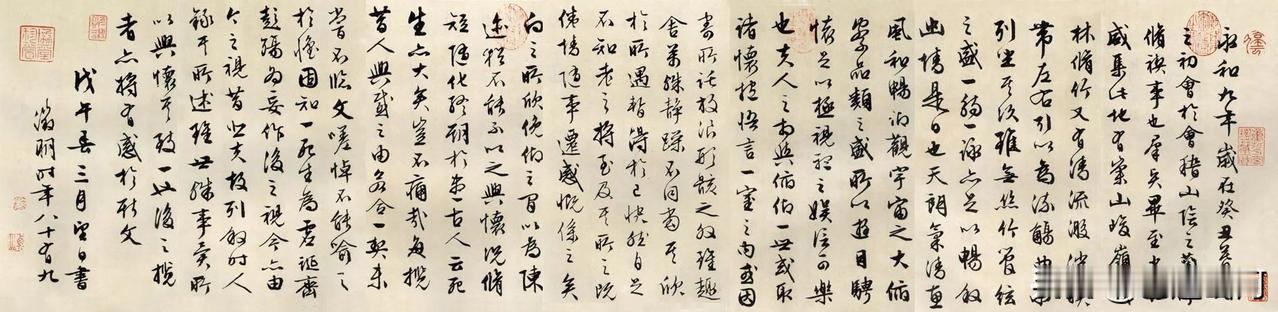 永和九年歲在癸丑暮
之初會於會稽山陰之蘭亭
脩禊事也羣賢畢至少
咸集此地有崇山峻嶺
林脩竹又有清流激湍映
帶左右引以為流觴曲水
列坐其次雖無絲竹管絃
之盛一觴一詠亦足以暢敘
幽情是日也天朗氣清惠
風和暢仰觀宇宙之大俯
察品類之盛所以遊目騁
懷足以極視聽之娛信可樂
也夫人之相與俯仰一世或取
諸懷抱悟言一室之內或因
寄所託放浪形骸之外雖趣
舍萬殊靜躁不同當其欣
於所遇暫得於己快然自足
不知老之將至及其所之既
倦情隨事遷感慨係之矣
向之所欣俛仰之間以為陳
迹猶不能不以之興懷況脩
短隨化終期於盡古人云死
生亦大矣豈不痛哉每攬
昔人興感之由若合一契未
嘗不臨文嗟悼不能喻之
於懷固知一死生為虛誕齊
彭殤為妄作後之視今亦由
今之視昔悲夫故列敘時人
錄其所述雖世殊事異所
以興懷其致一也後之攬
者亦將有感於斯文
戊午春三月望日書
徵明時年八十有九